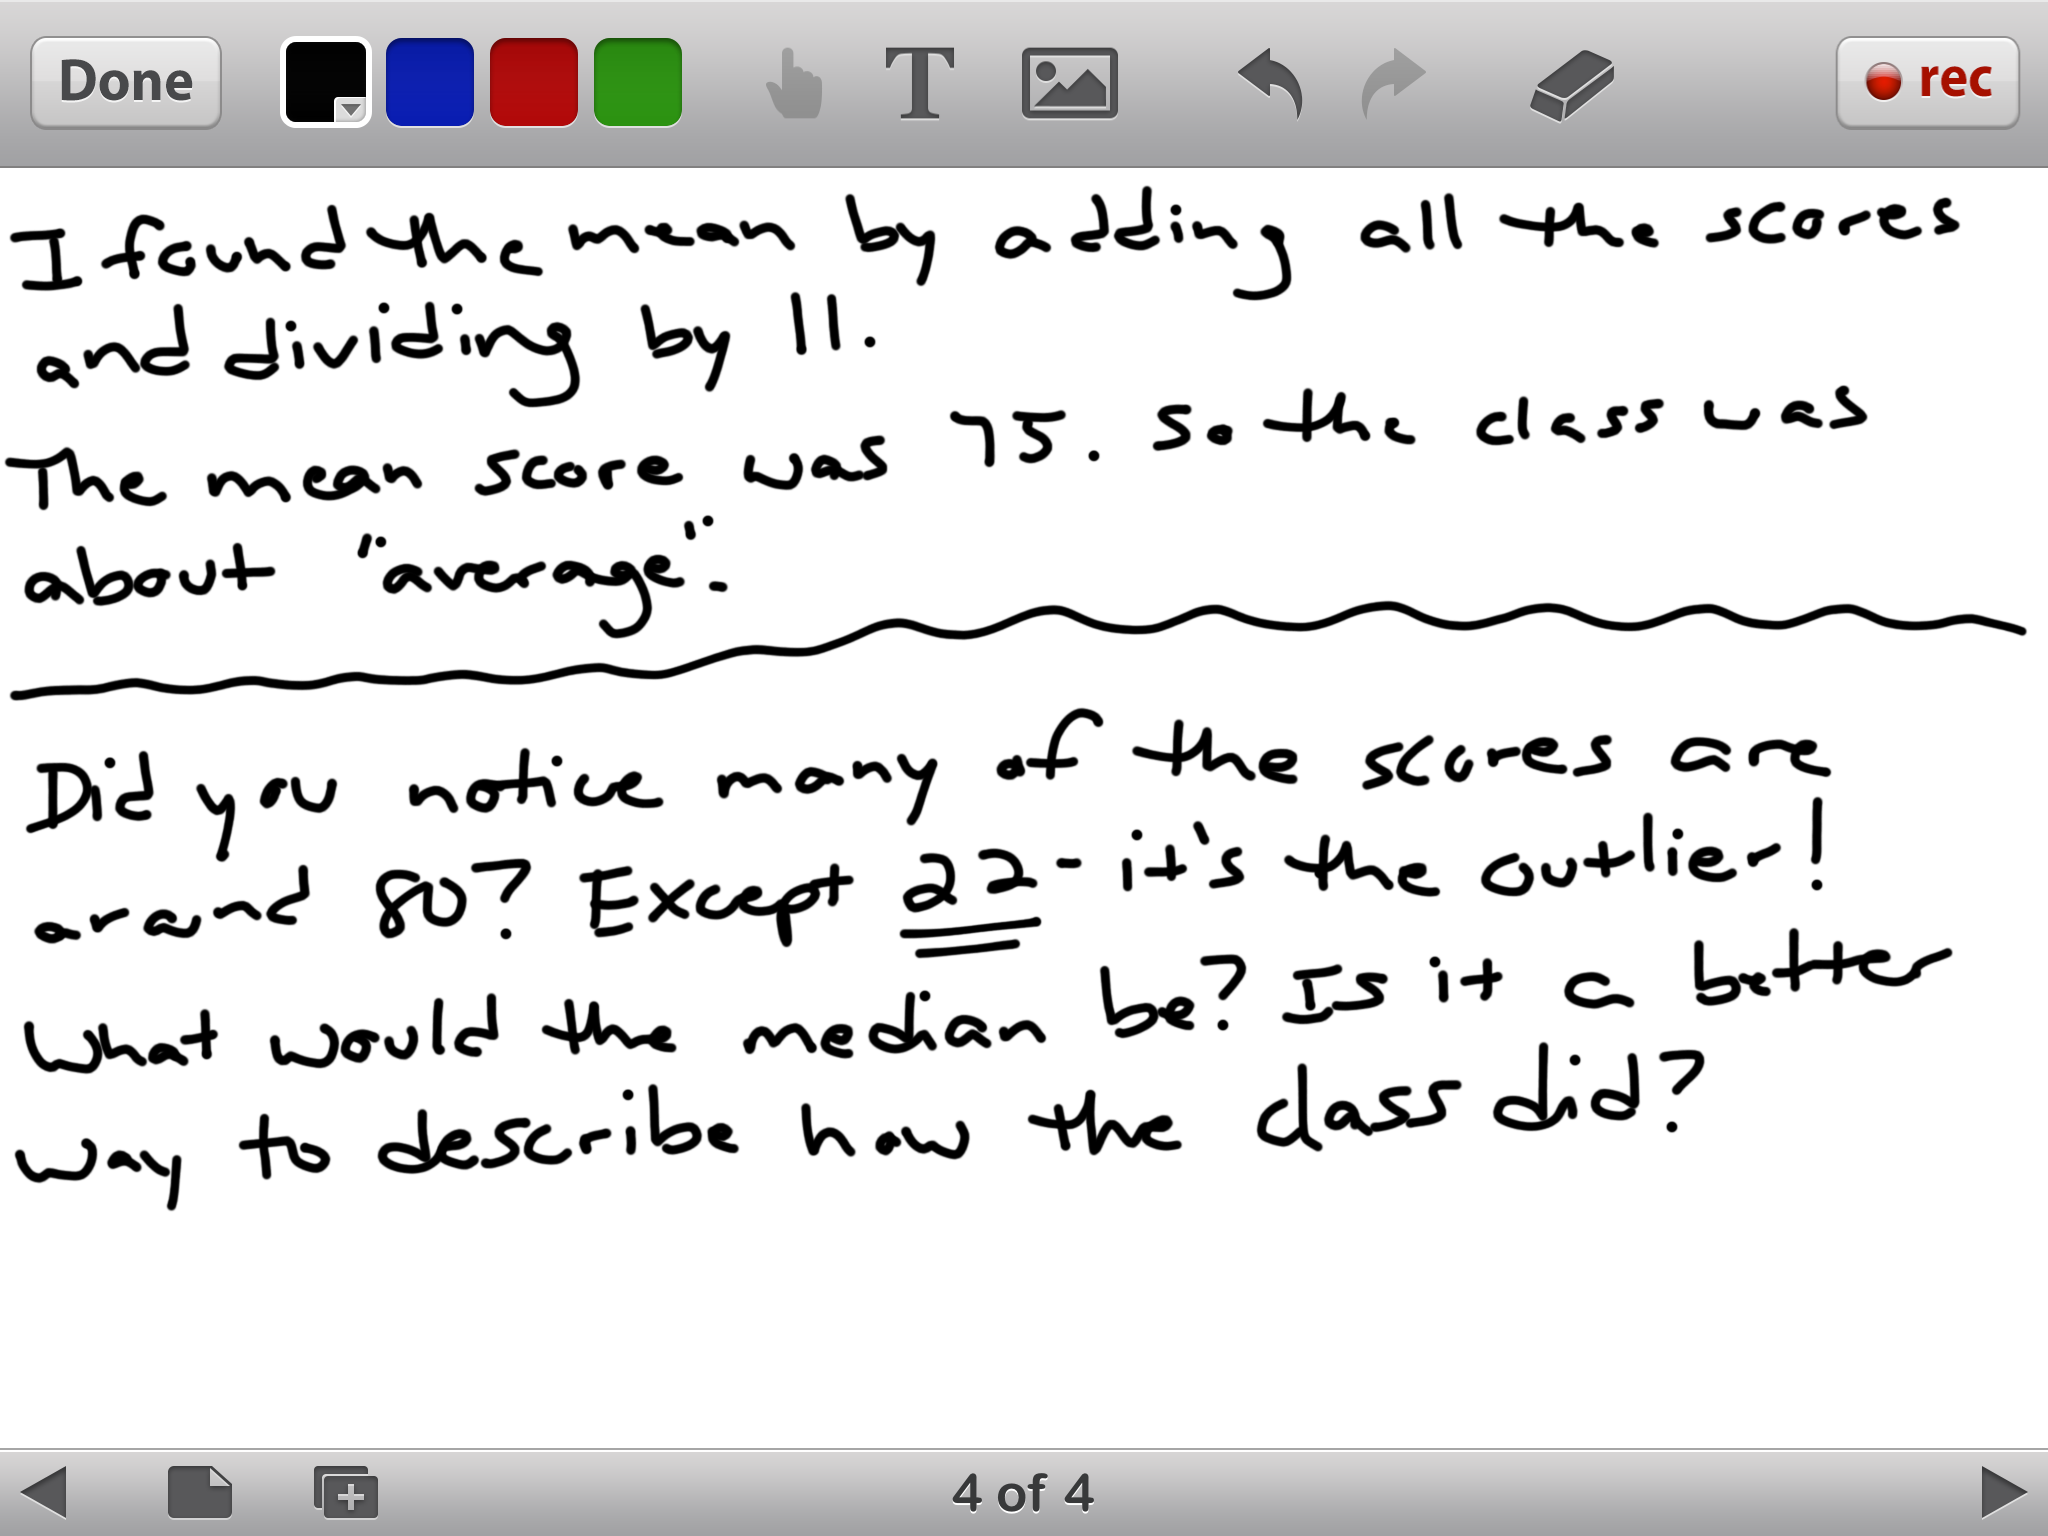 Done
T
rec
I found the mean by adding all the scores
and dividing by 11.
The mean score was 75. So the class was
about "average".
Did you notice many of the scores are
around 80? Except 22 - it's the outlier!
What would the median be? Is it a better
way to describe how the class did?
4 of 4